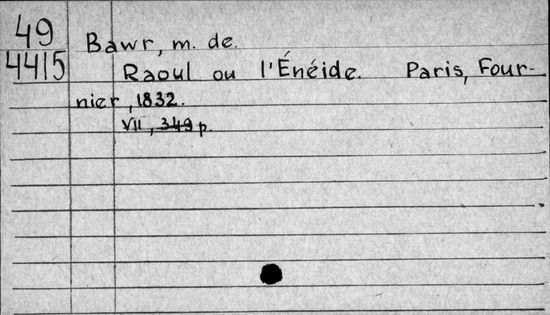 49
4415
Bawr, m. de.
Raoul ou l'Énéide. Paris, Four-
nier, 1832.
VII, 349 p.